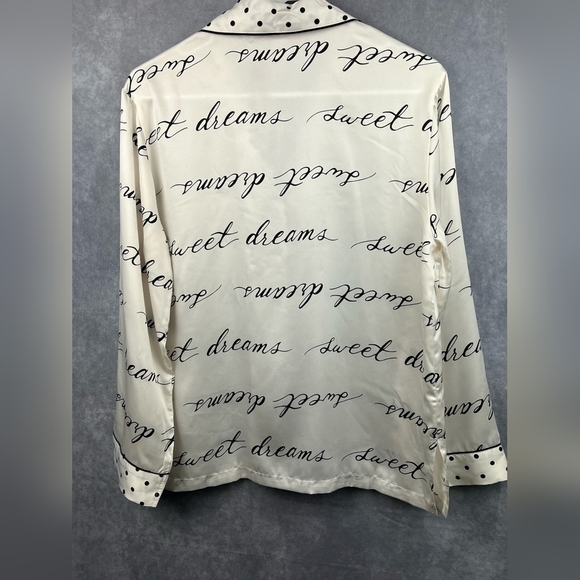 sweet dreams
sweet dreams sweet
sweet dreams
sweet dreams sweet
sweet dreams
sweet dreams sweet dreams
sweet dreams
sweet dreams sweet